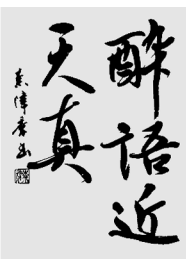 醉語近
天真